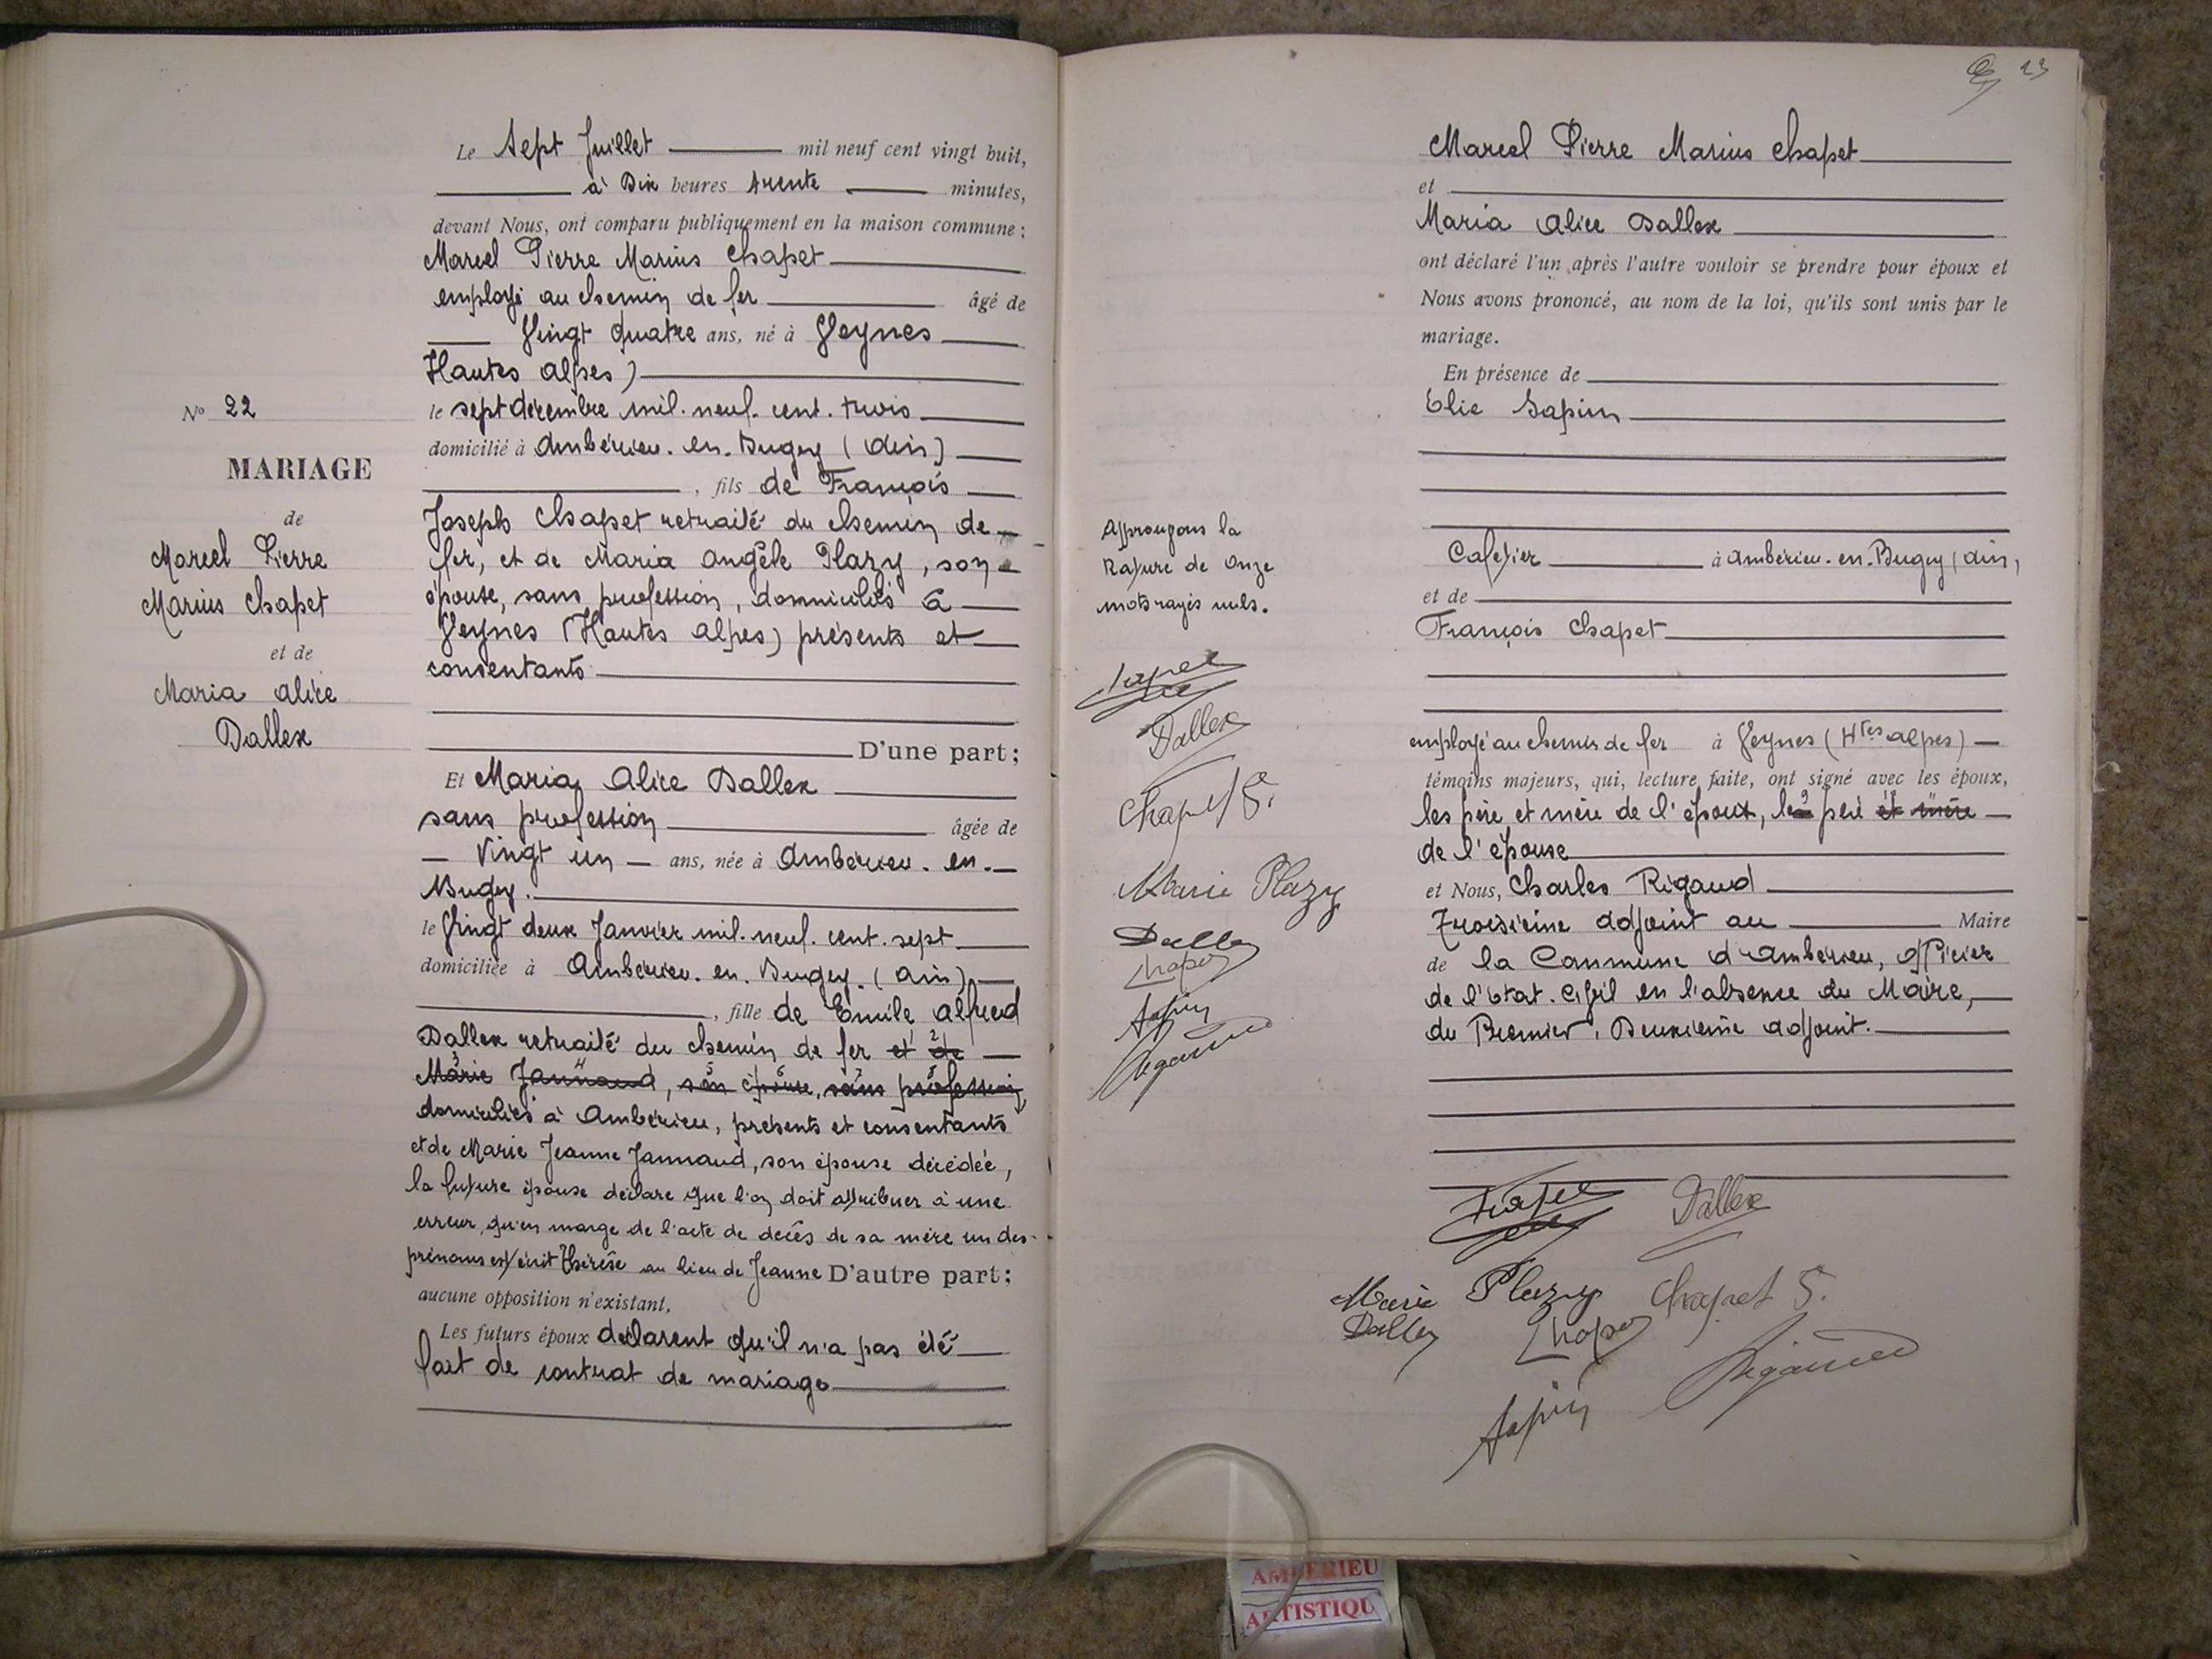 N° 22
MARIAGE
de
Marcel Pierre
Marius Chapet
et de
Maria Alice
Dallex
Le Sept Juillet mil neuf cent vingt huit,
à Dix heures trente minutes,
devant Nous, ont comparu publiquement en la maison commune :
Marcel Pierre Marius Chapet
employé au chemin de fer âgé de
Vingt quatre ans, né à Veynes
Hautes Alpes)
le sept décembre mil. neuf. cent. trois
domicilié à Ambérieu. en. Bugey (Ain)
, fils de François
Joseph Chapet retraité du chemin de
fer, et de Maria Angèle Plazy, son
épouse, sans profession, domiciliés à
Veynes (Hautes Alpes) présents et
consentants
D'une part ;
Et Maria Alice Dallex
sans profession âgée de
Vingt un ans, née à Ambérieu. en.
Bugey.
le Vingt deux Janvier mil. neuf. cent. sept
domiciliée à Ambérieu. en. Bugey. (Ain)
, fille de Emile Alfred
Dallex retraité du chemin de fer et de
Marie Jannaud, son épouse, sans profession,
domiciliés à Ambérieu, présents et consentants
et de Marie Jeanne Jannaud, son épouse décédée,
la future épouse déclare que l'on doit attribuer à une
erreur, qu'en marge de l'acte de décès de sa mère un des
prénoms est écrit Thérèse au lieu de Jeanne D'autre part ;
aucune opposition n'existant,
Les futurs époux déclarent qu'il n'a pas été
fait de contrat de mariage
23
Marcel Pierre Marius Chapet
et
Maria Alice Dallex
ont déclaré l'un après l'autre vouloir se prendre pour époux et
Nous avons prononcé, au nom de la loi, qu'ils sont unis par le
mariage.
En présence de
Elie Sapin
Cafetier à Ambérieu. en. Bugey (Ain,
et de
François Chapet
employé au chemin de fer à Veynes (Htes Alpes)
témoins majeurs, qui, lecture faite, ont signé avec les époux,
les père et mère de l'époux, le père et mère
de l'épouse
et Nous, Charles Rigaud
Troisième adjoint au Maire
de la Commune d'Ambérieu, officier
de l'Etat. Civil en l'absence du Maire,
du Premier, Deuxième adjoint.
Approuvons la
Rature de Onze
mots rayés nuls.
Dallex
Chapet F.
Marie Plazy
Dallex
Chapet
Sapin
Rigaud
Chapet
Dallex
Marie Plazy Chapet F.
Dallex Chapet
Rigaud
Sapin
AMBERIEU
ARTISTIQU